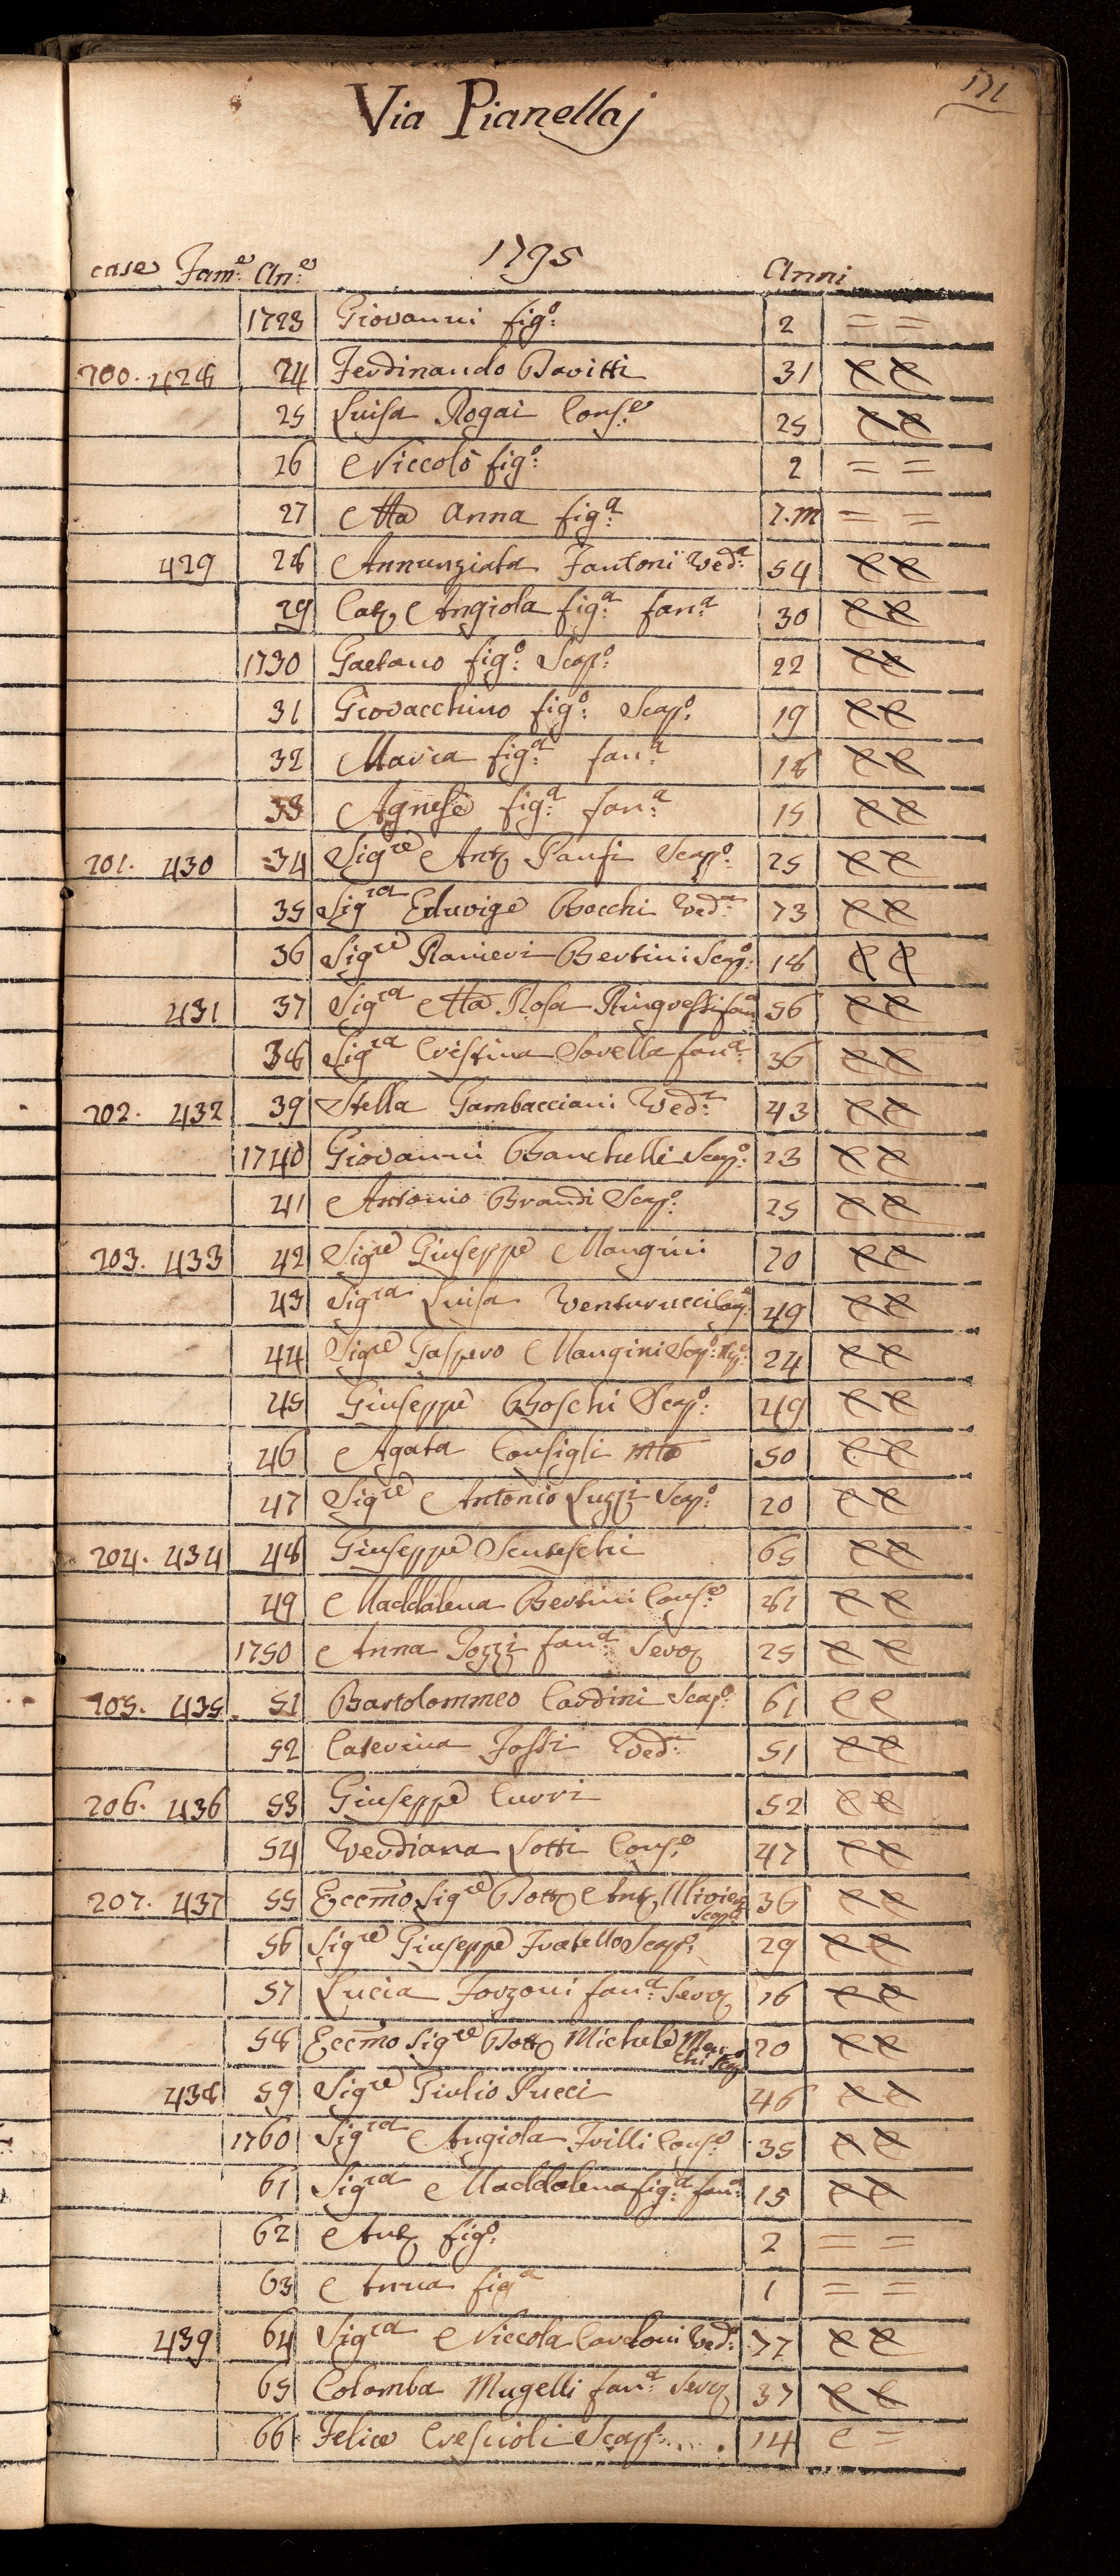 171
Via Pianellaj
1795
case Fam:e An:e Anni
1723 Giovanni figo: 2 = =
200. 428 24 Ferdinando Bavitti 31 e e
25 Luisa Rogai Cons:e 25 e e
26 Niccolò figo: 2 = =
27 Ma Anna figa: 7.m = =
429 28 Annunziata Fantoni Ved:a 54 e e
29 Cat Angiola figa: fan:a 30 e e
1730 Gaetano figo: Scapo: 22 e e
31 Giovacchino figo: Scapo: 19 e e
32 Maria figa: fan:a 18 e e
33 Agnese figa: fan:a 15 e e
201. 430 34 Sigre Anto Panfi Scapo: 25 e e
35 Sigra Eduvige Bocchi Ved:a 73 e e
36 Sigre Ranieri Bertini Scapo: 18 e e
431 37 Sigra Ma Rosa Ringressi fana 56 e e
38 Sigra Cristina Sovella fan:a 36 e e
202. 432 39 Stella Gambacciani Ved:a 43 e e
1740 Giovanni Banchelli Scapo: 23 e e
41 Antonio Brandi Scapo: 25 e e
203. 433 42 Sigre Giuseppe Mangini 70 e e
43 Sigra Luisa Venturucci 49 e e
44 Sigre Gaspero Mangini Scapo: 24 e e
45 Giuseppe Boschi Scapo: 49 e e
46 Agata Consigli Mta 50 e e
47 Sigre Antonio Luzzi Scapo: 20 e e
204. 434 48 Giuseppe 65 e e
49 Maddalena Bertini Cons:e 61 e e
1750 Anna Pozzi fan:a Serv 25 e e
205. 435 51 Bartolommeo Cardini Scapo: 61 e e
52 Caterina Fossi Ved:a 51 e e
206. 436 53 Giuseppe Curri 52 e e
54 Verdiana Lotti Cons:e 47 e e
207. 437 55 Eccmo Sigre Dott Ant Ulivieri Scapo 36 e e
56 Sigre Giuseppe Fratello Scapo: 29 e e
57 Lucia Forzoni fan:a Serv 16 e e
58 Eccmo Sigre Dott Michele Marchi Scapo 20 e e
438 59 Sigre Giulio Pucci 46 e e
1760 Sigra Angiola Frilli Cons:e 35 e e
61 Sigra Maddalena figa: fan:a 15 e e
62 Ant figo: 2 = =
63 Anna figa 1 = =
439 64 Sigra Niccola Cardoni Ved:a 77 e e
65 Colomba Mugelli fan:a Serv 37 e e
66 Felice Crescioli Scapo: . . . 14 e =